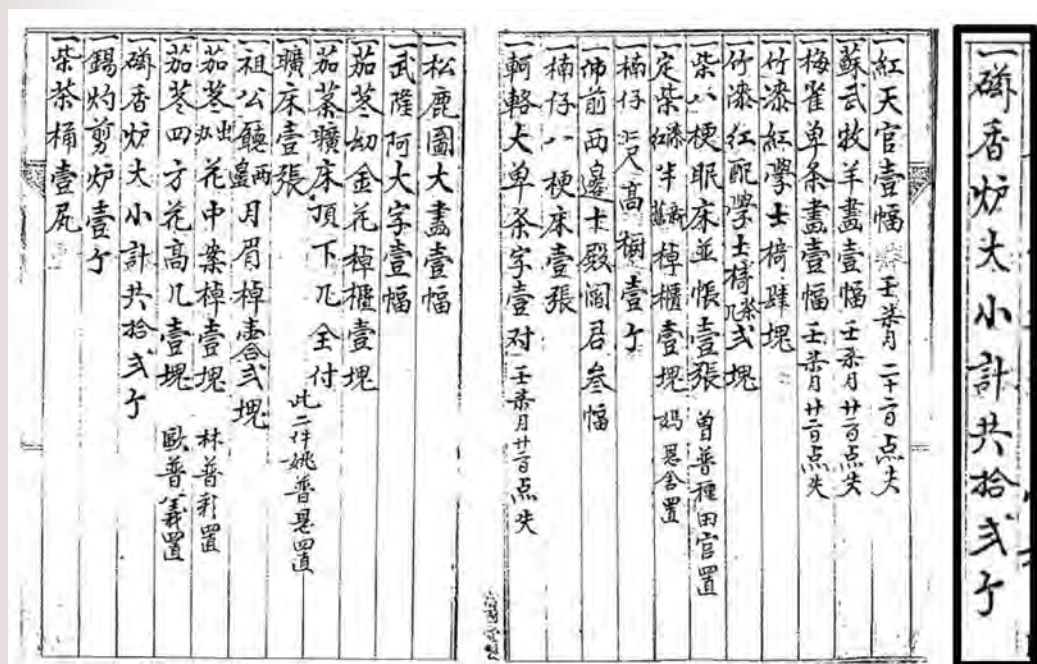 一磁香炉大小計共拾弍亇
一紅天官壹幅 壬柒月二十二日点失
一蘇武牧羊畫壹幅 壬柒月廿二日点失
一梅雀单条畫壹幅 壬柒月廿二日点失
一竹漆紅學士椅肆塊
一竹漆红配學士椅茶几弍塊
一柴八梗眠床並帳壹張 曾普種田官置
一定柴漆紅半棹櫃壹塊 媽恩舍置
一楠仔二尺高橱壹亇
一佈前西邊十殿閻君叁幅
一楠仔八梗床壹張
一軻輅大单条字壹对 壬柒月廿二日点失
一松鹿圖大畫壹幅
一武隆阿大字壹幅
一茄苳幼金花棹櫃壹塊
一茄蓁曠床頂下几全付
一曠床壹張 此二件姚普恩置
一祖公聽兩月眉棹弍塊
一茄苳出花中案棹壹塊 林普彩置
一茄苳四方花高几壹塊 歐普義置
一磁香炉大小計共拾弍亇
一錫灼剪炉壹亇
一柴茶桶壹尻